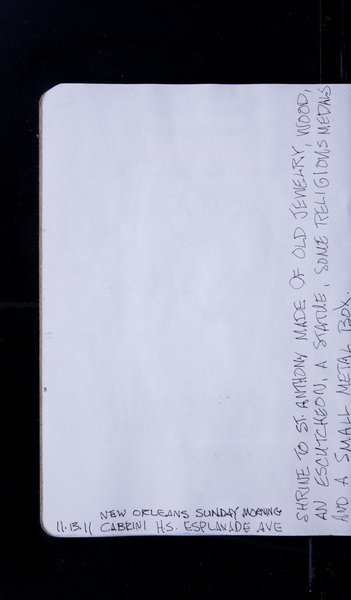 SHRINE TO ST. ANTHONY MADE OF OLD JEWELRY, WOOD,
AN ESCUTCHEON, A STATUE, SOME RELIGIOUS MEDALS
AND A SMALL METAL BOX.
NEW ORLEANS SUNDAY MORNING
11.13.11 CABRINI H.S. ESPLANADE AVE